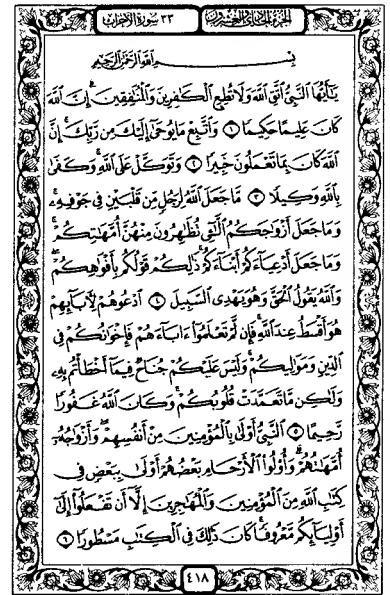 ٣٣ سورة الأحزاب
الجزء الحادي والعشرون
بِسْمِ اللَّهِ الرَّحْمَٰنِ الرَّحِيمِ
يَٰٓأَيُّهَا ٱلنَّبِيُّ ٱتَّقِ ٱللَّهَ وَلَا تُطِعِ ٱلْكَٰفِرِينَ وَٱلْمُنَٰفِقِينَ إِنَّ ٱللَّهَ
كَانَ عَلِيمًا حَكِيمًا ١ وَٱتَّبِعْ مَا يُوحَىٰٓ إِلَيْكَ مِن رَّبِّكَ إِنَّ
ٱللَّهَ كَانَ بِمَا تَعْمَلُونَ خَبِيرًا ٢ وَتَوَكَّلْ عَلَى ٱللَّهِ وَكَفَىٰ
بِٱللَّهِ وَكِيلًا ٣ مَّا جَعَلَ ٱللَّهُ لِرَجُلٍ مِّن قَلْبَيْنِ فِى جَوْفِهِۦ
وَمَا جَعَلَ أَزْوَٰجَكُمُ ٱلَّٰٓـِٔى تُظَٰهِرُونَ مِنْهُنَّ أُمَّهَٰتِكُمْ
وَمَا جَعَلَ أَدْعِيَآءَكُمْ أَبْنَآءَكُمْ ذَٰلِكُمْ قَوْلُكُم بِأَفْوَٰهِكُمْ
وَٱللَّهُ يَقُولُ ٱلْحَقَّ وَهُوَ يَهْدِى ٱلسَّبِيلَ ٤ ٱدْعُوهُمْ لِءَابَآئِهِمْ
هُوَ أَقْسَطُ عِندَ ٱللَّهِ فَإِن لَّمْ تَعْلَمُوٓا۟ ءَابَآءَهُمْ فَإِخْوَٰنُكُمْ فِى
ٱلدِّينِ وَمَوَٰلِيكُمْ وَلَيْسَ عَلَيْكُمْ جُنَاحٌ فِيمَآ أَخْطَأْتُم بِهِۦ
وَلَٰكِن مَّا تَعَمَّدَتْ قُلُوبُكُمْ وَكَانَ ٱللَّهُ غَفُورًا
رَّحِيمًا ٥ ٱلنَّبِيُّ أَوْلَىٰ بِٱلْمُؤْمِنِينَ مِنْ أَنفُسِهِمْ وَأَزْوَٰجُهُۥٓ
أُمَّهَٰتُهُمْ وَأُو۟لُوا۟ ٱلْأَرْحَامِ بَعْضُهُمْ أَوْلَىٰ بِبَعْضٍ فِى
كِتَٰبِ ٱللَّهِ مِنَ ٱلْمُؤْمِنِينَ وَٱلْمُهَٰجِرِينَ إِلَّآ أَن تَفْعَلُوٓا۟ إِلَىٰٓ
أَوْلِيَآئِكُم مَّعْرُوفًا كَانَ ذَٰلِكَ فِى ٱلْكِتَٰبِ مَسْطُورًا ٦
٤١٨